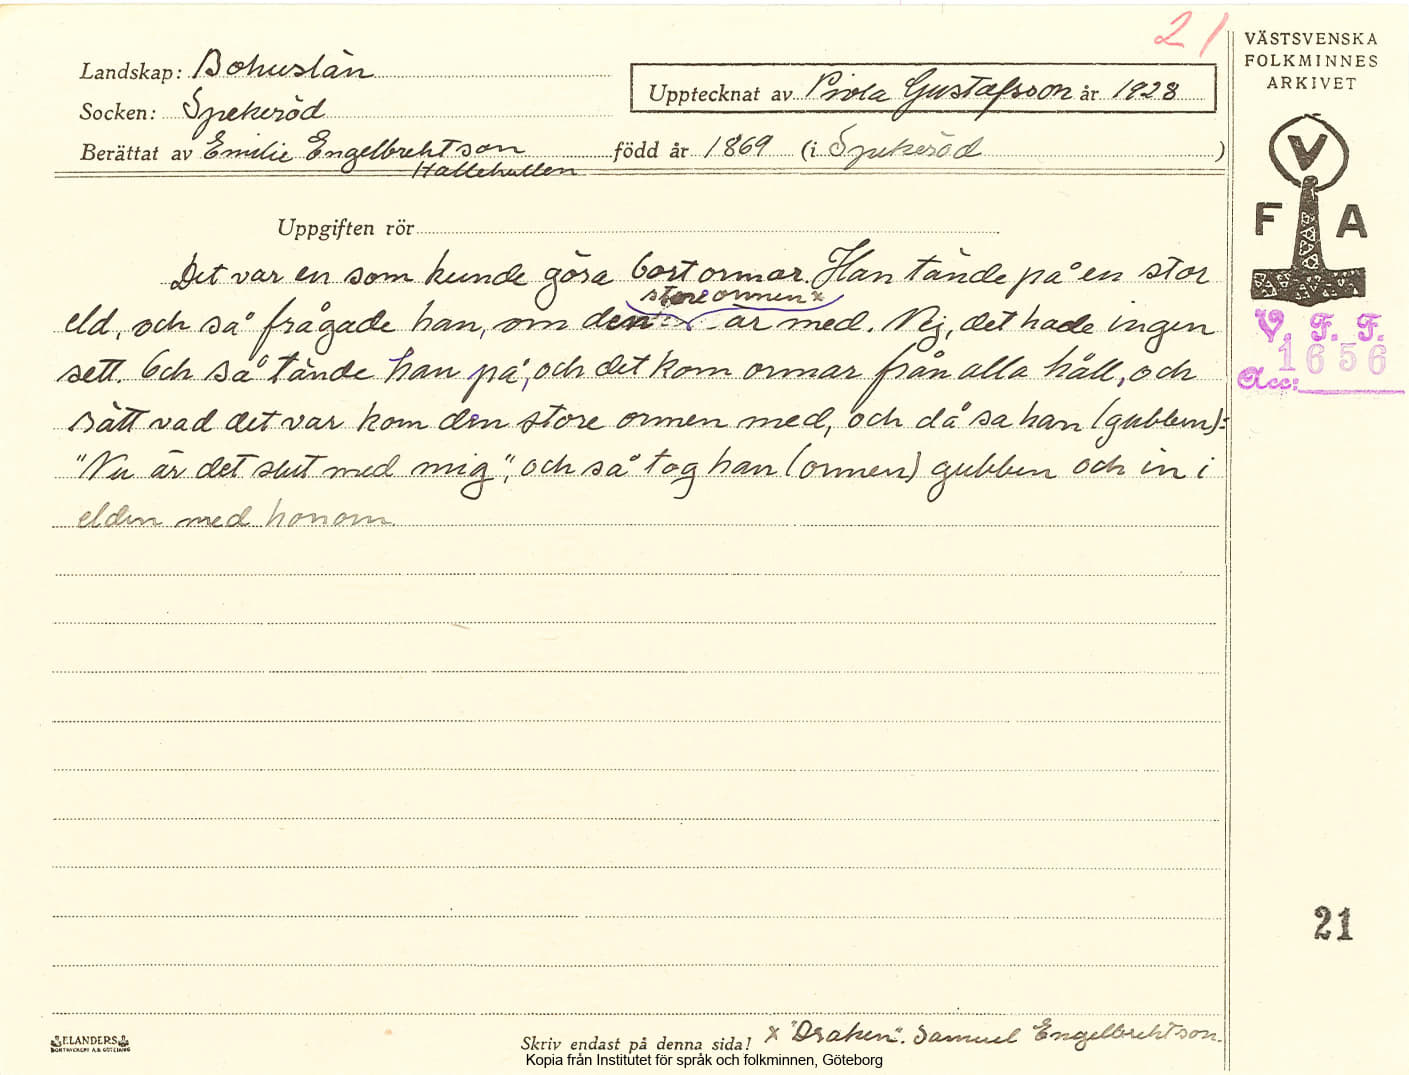 21
VÄSTSVENSKA
FOLKMINNES
ARKIVET
Landskap: Bohuslän
Socken: Spekeröd
Upptecknat av Viola Gustafsson år 1928
Berättat av Emilie Engelbrektson född år 1869 (i Spekeröd)
Hallehullen
V
F A
V. F. F.
1656
Acc:
Uppgiften rör
Det var en som kunde göra bort ormar. Han tände på en stor
store ormen x
eld, och så frågade han, om den är med. Nej, det hade ingen
sett. Och så tände han på, och det kom ormar från alla håll, och
rätt vad det var kom den store ormen med, och då sa han (gubben):
"Nu är det slut med mig", och så tog han (ormen) gubben och in i
elden med honom.
21
ELANDERS
BOKTRYCKERI A.B. GÖTEBORG
Skriv endast på denna sida!
x "Draken". Samuel Engelbrektson.
Kopia från Institutet för språk och folkminnen, Göteborg